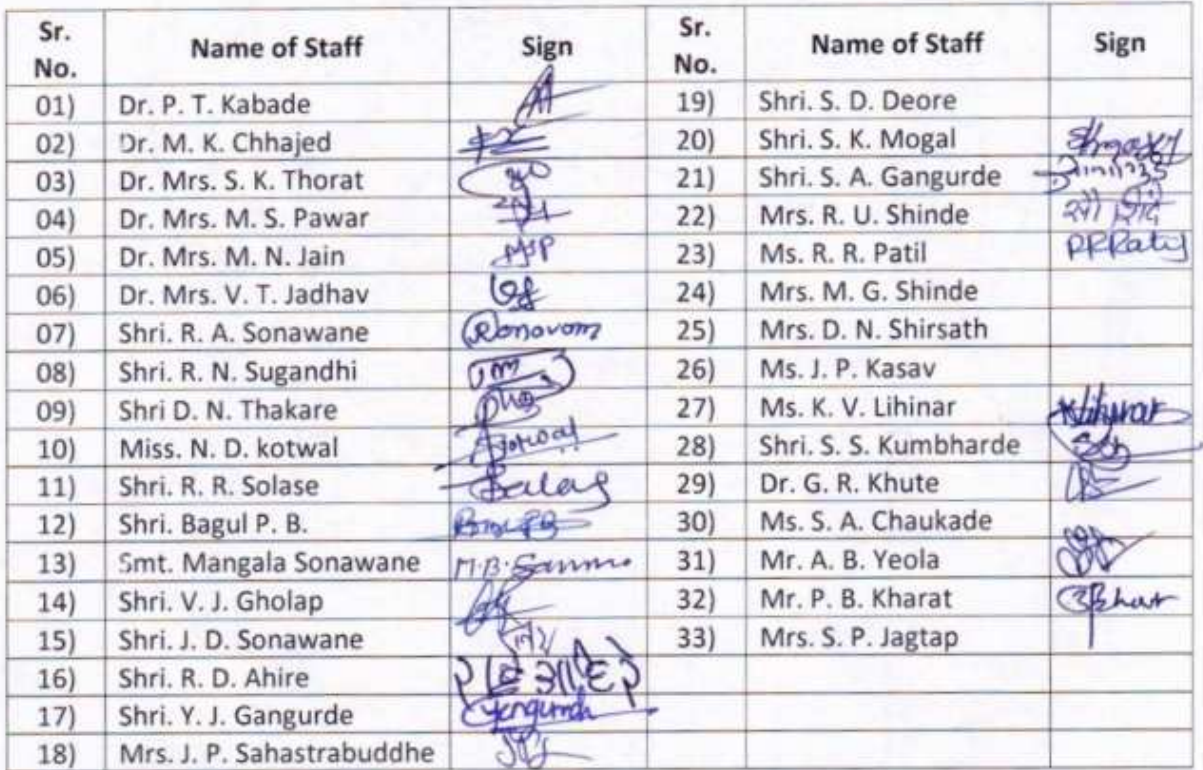 Sr. No. Name of Staff Sign Sr. No. Name of Staff Sign
01) Dr. P. T. Kabade 19) Shri. S. D. Deore
02) Dr. M. K. Chhajed 20) Shri. S. K. Mogal
03) Dr. Mrs. S. K. Thorat 21) Shri. S. A. Gangurde
04) Dr. Mrs. M. S. Pawar 22) Mrs. R. U. Shinde
05) Dr. Mrs. M. N. Jain 23) Ms. R. R. Patil
06) Dr. Mrs. V. T. Jadhav 24) Mrs. M. G. Shinde
07) Shri. R. A. Sonawane 25) Mrs. D. N. Shirsath
08) Shri. R. N. Sugandhi 26) Ms. J. P. Kasav
09) Shri D. N. Thakare 27) Ms. K. V. Lihinar
10) Miss. N. D. kotwal 28) Shri. S. S. Kumbharde
11) Shri. R. R. Solase 29) Dr. G. R. Khute
12) Shri. Bagul P. B. 30) Ms. S. A. Chaukade
13) Smt. Mangala Sonawane 31) Mr. A. B. Yeola
14) Shri. V. J. Gholap 32) Mr. P. B. Kharat
15) Shri. J. D. Sonawane 33) Mrs. S. P. Jagtap
16) Shri. R. D. Ahire
17) Shri. Y. J. Gangurde
18) Mrs. J. P. Sahastrabuddhe